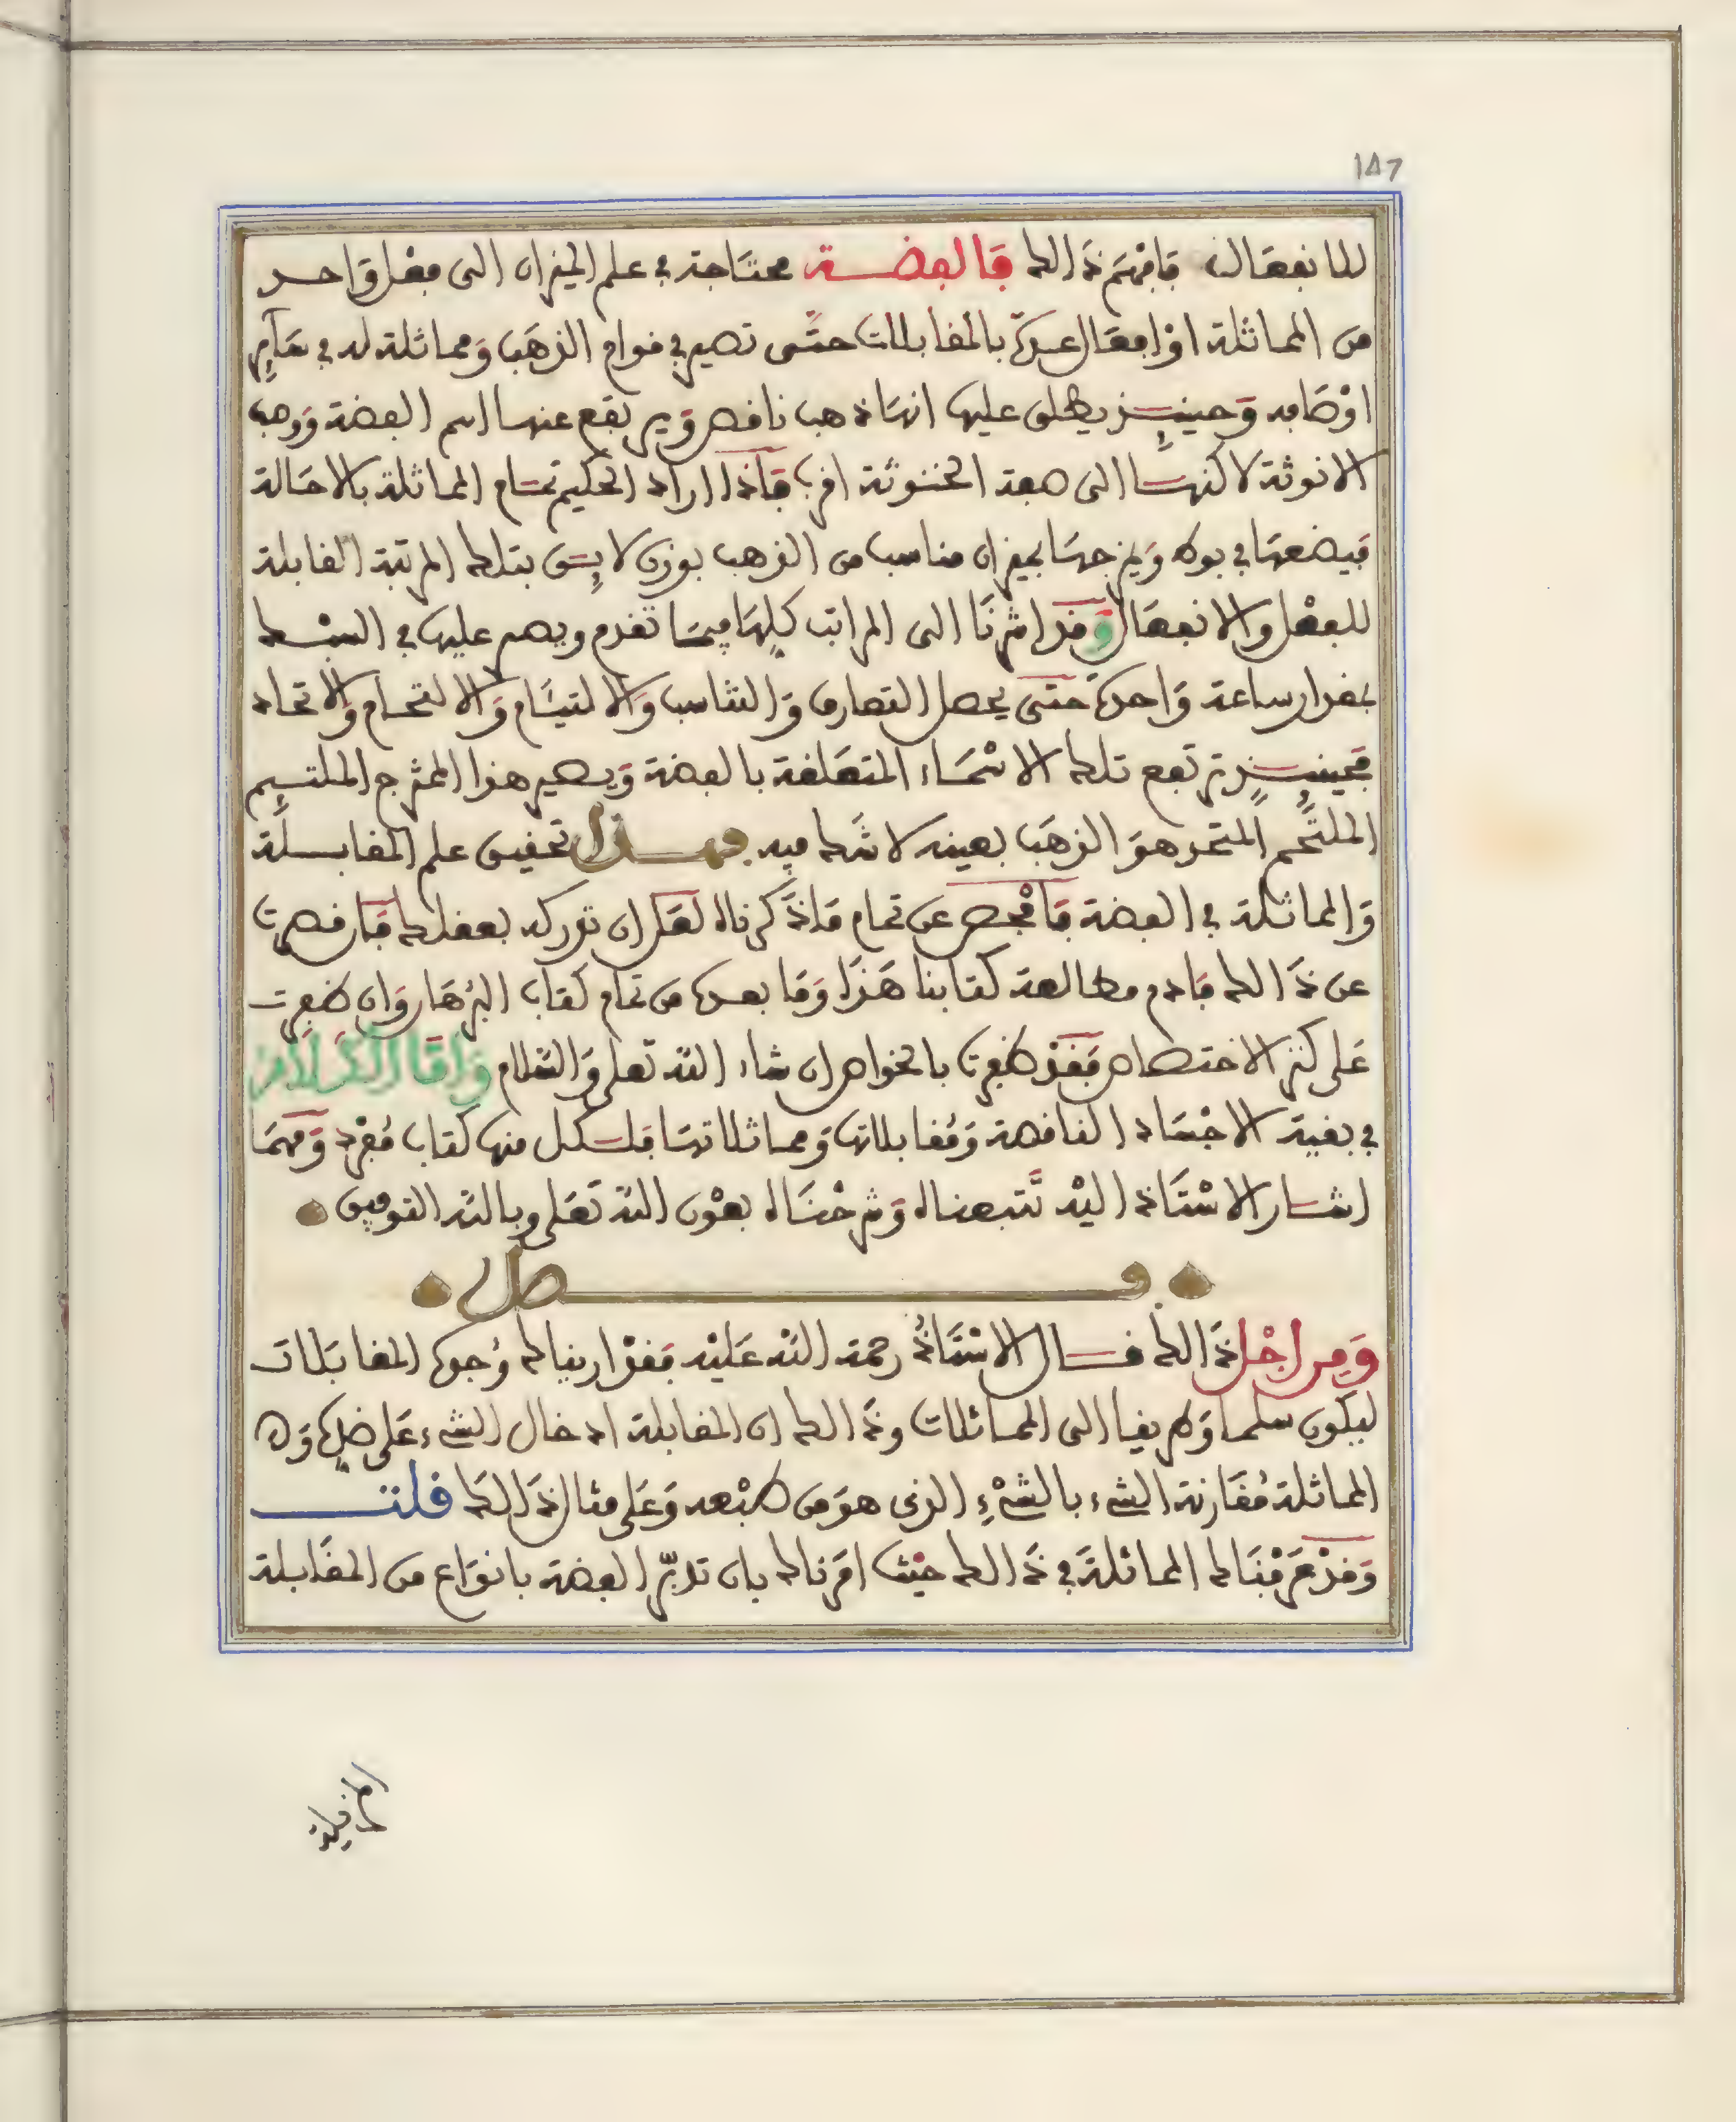 147
للانفعالات فافهم ذالك فالفضة محتاجة في علم الميزان الى فعل واحد
من المماثلة او افعال عدة بالمقابلات حتى تصير في قوام الذهب ومماثلة له في سائر
اوصافه وحينئذ يطلق عليها انها ذهب ناقص ويرتفع عنها اسم الفضة ووصف
الانوثة لاكنها الى صفة الخنوثة اقرب فاذا اراد الحكيم تمام المماثلة بالاحالة
فيضعها في بوط ويمزجها بميزان مناسب من الذهب بوزن لايق بتلك المرتبة القابلة
للفعل والانفعال وقد اشرنا الى المراتب كلها فيما تقدم ويصبر عليها في السبك
بمقدار ساعة واحدة حتى يحصل التعارف والتناسب والالتيام والالتحام والاتحاد
فحينئذ ترتفع تلك الاسماء المتعلقة بالفضة ويصير هذا الممتزج الملتئم
الملتحم المتحد هو الذهب بعينه لا شك فيه فهذا تحقيق علم المقابلة
والمماثلة في الفضة فافحص عن تمام ماذكرناه لعل ان تدركه بعقلك فان قصرت
عن ذالك فادم مطالعة كتابنا هذا وما بعده من تمام كتاب البرهان وان ظفرت
على كنز الاختصاص فقد ظفرت بالخواص ان شاء الله تعلى والسلام واما الكلام
في بقية الاجساد الناقصة ومقابلاتها ومماثلاتها فلكل منها كتاب مفرد ومهما
اشار الاستاذ اليه تتبعناه وشرحناه بعون الله تعلى وبالله التوفيق
فصل
ومن اجل ذالك قال الاستاذ رحمة الله عليه فقد اريناك وجوه المقابلات
ليكون سلما وطريقا الى المماثلات وذالك ان المقابلة ادخال الشيء على ضده و
المماثلة مقارنة الشيء بالشيء الذي هو من طبعه وعلى مثال ذالك قلت
وقد عرفناك المماثلة في ذالك حيث امرناك بان تدبر الفضة بانواع من المقابلة